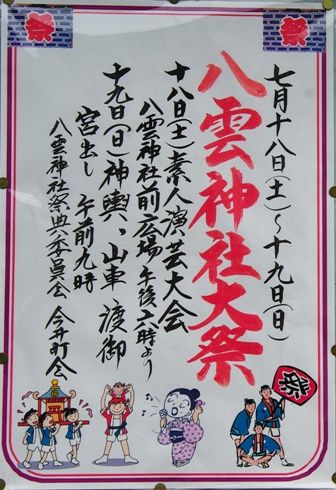 祭
祭
七月十八日(土)〜十九日(日)
八雲神社大祭
十八(土)素人演芸大会
八雲神社前広場 午後六時より
十九日(日)神輿、山車 渡御
宮出し 午前九時
八雲神社祭典委員会 今井町会
祭